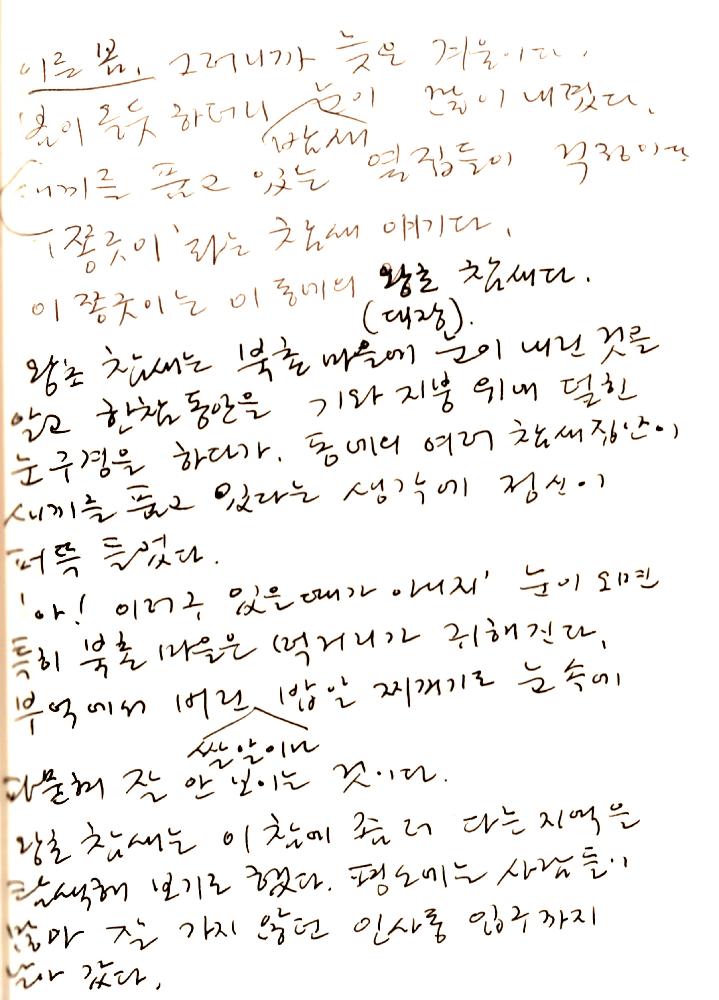 이른 봄, 그러니까 늦은 겨울이다.
봄이 온듯 하더니 눈이 많이 내렸다.
밤새
새끼를 품고 있는 옆집들이 걱정이다
'쫑긋이'라는 참새 얘기다.
이 쫑긋이는 이 동네의 왕초 참새다.
(대장).
왕초 참새는 북촌 마을에 눈이 내린 것을
알고 한참동안을 기와 지붕 위에 덮힌
눈 구경을 하다가. 동네의 여러 참새집안이
새끼를 품고 있다는 생각에 정신이
퍼뜩 들었다.
'아! 이러구 있을때가 아니지' 눈이 오면
특히 북촌 마을은 먹거리가 귀해진다.
부엌에서 버린 밥알 찌꺼기도 눈 속에
쌀알이나
파묻혀 잘 안 보이는 것이다.
왕초 참새는 이 참에 좀 더 다른 지역을
탐색해 보기로 했다. 평소에는 사람들이
많아 잘 가지 않던 인사동 입구까지
날아 갔다.